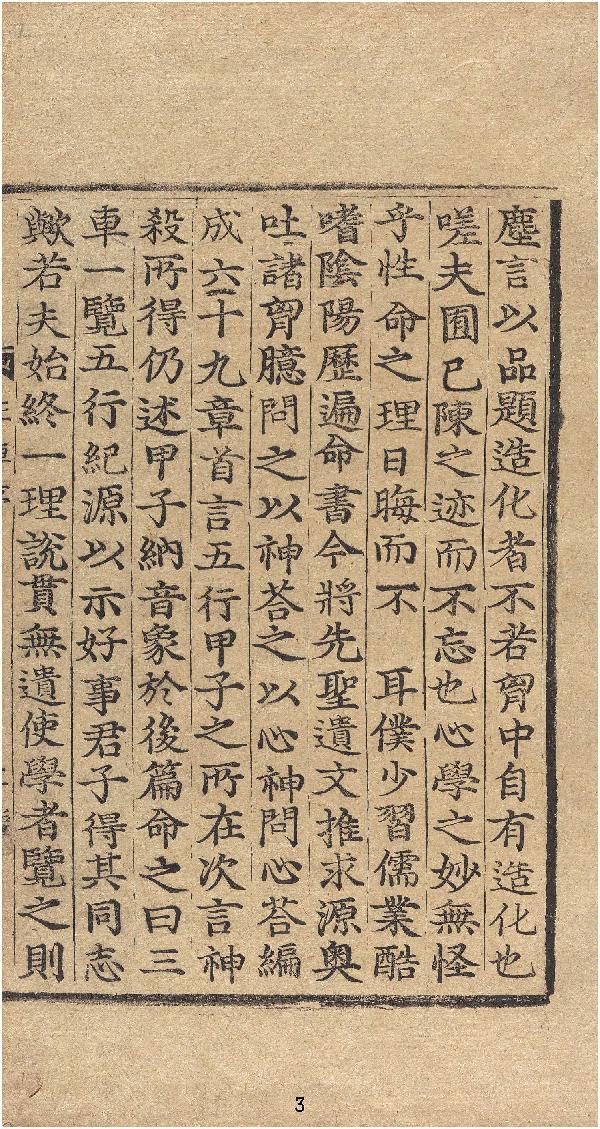 塵言以品題造化者不若胷中自有造化也
嗟夫囿已陳之迹而不忘也心學之妙無怪
乎性命之理日晦而不 耳僕少習儒業酷
嗜隂陽歷遍命書今將先聖遺文推求源奥
吐諸胷臆問之以神荅之以心神問心荅編
成六十九章首言五行甲子之所在次言神
殺所得仍述甲子納音象於後篇命之曰三
車一覽五行紀源以示好事君子得其同志
歟若夫始終一理說貫無遺使學者覽之則
3